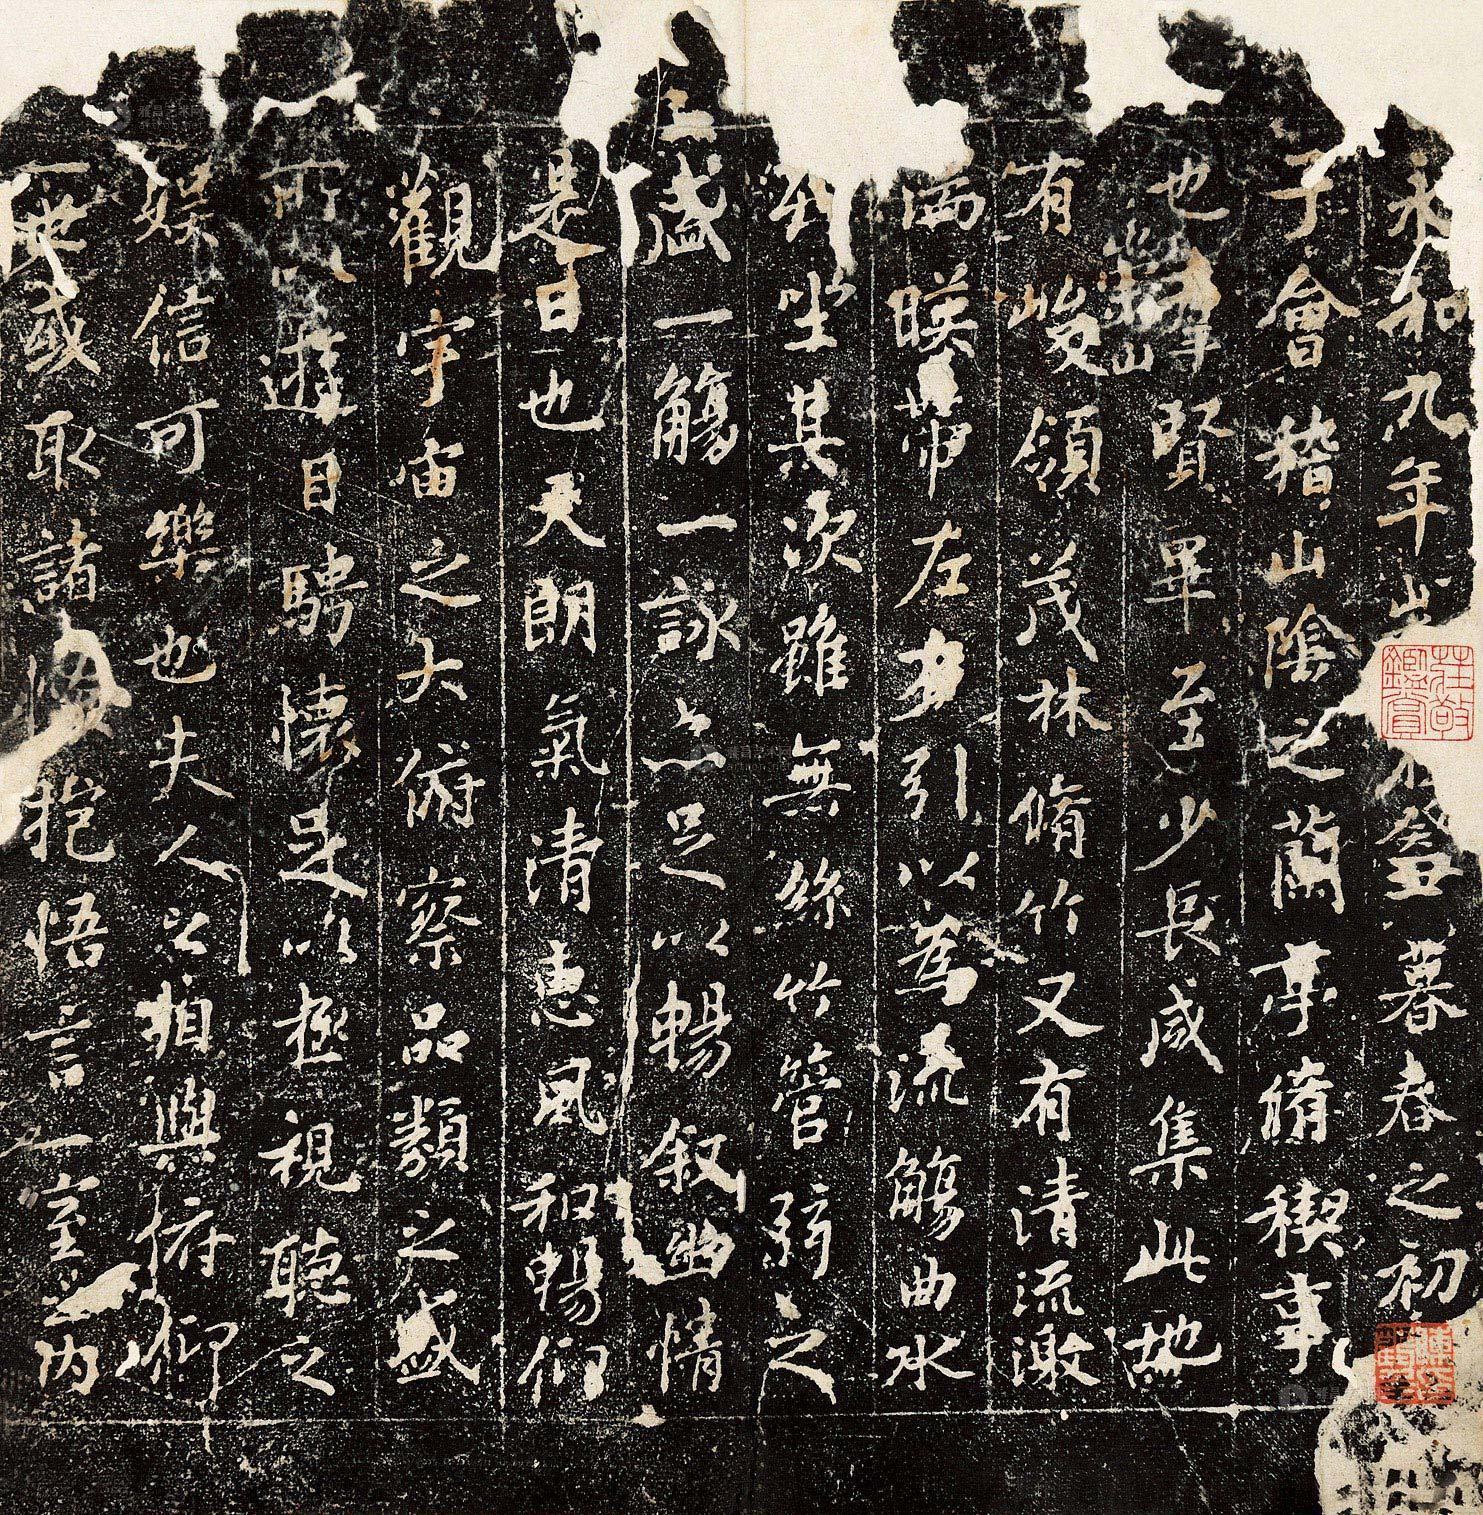 永和九年癸丑暮春之初
于會稽山陰之蘭亭脩稧事
也群賢畢至少長咸集此地
有崇山峻領茂林脩竹又有清流激
湍暎帶左右引以為流觴曲水
列坐其次雖無絲竹管弦之
盛一觴一詠亦足以暢敘幽情
是日也天朗氣清惠風和暢仰
觀宇宙之大俯察品類之盛
所以遊目騁懷足以極視聽之
娛信可樂也夫人之相與俯仰
一世或取諸懷抱悟言一室之內